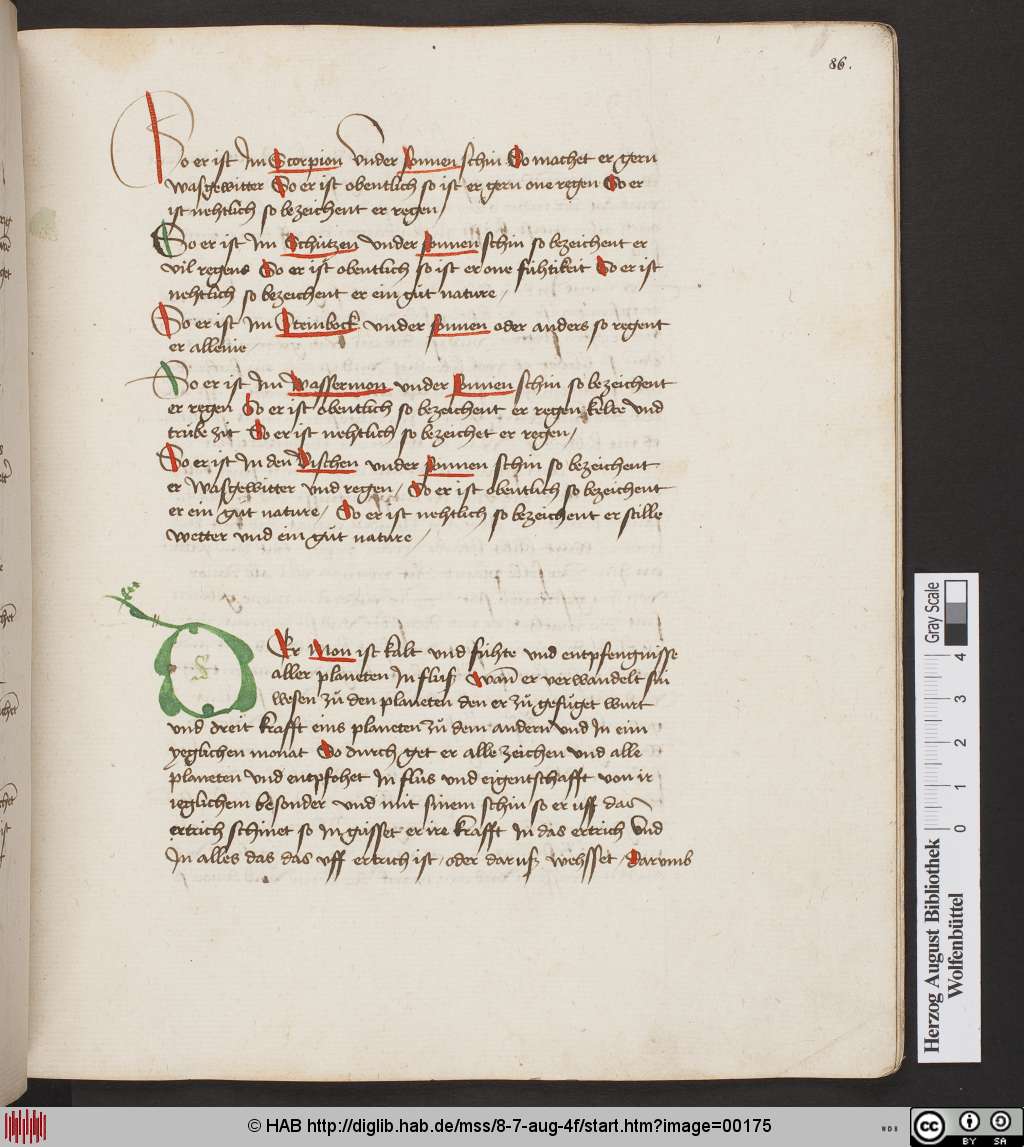 86.
So er ist Im Scorpion vnder Sonnen schin So machet er gern
wasgewitter So er ist obentlich so ist er gern one regen So er
ist nehtlich so bezeichent er regen/
So er ist Im Schützen vnder sonnen schin so bezeichent er
vil regens So er ist obentlich so ist er one fühtikeit So er ist
nehtlich so bezeichent er ein güt nature/
So er ist Im Steinbock vnder sonnen oder anders so regent
er alleine
So er ist Im Wassermon vnder sonnen schin so bezeichent
er regen So er ist obentlich so bezeichent er regen kelte vnd
trübe zit So er ist nehtlich so bezeichet er regen/
So er ist In den Vischen vnder sonnen schin so bezeichent
er Wasgewitter vnd regen/ So er ist obentlich so bezeichent
er ein güt nature/ So er ist nehtlich so bezeichent er stille
wetter vnd ein güt nature/
DEr Mon ist kalt vnd fühte vnd entpfengnisse
aller planeten In fluß Wan̄ er verwandelt sin
wesen zü den planeten den er zü gefüget wurt
vnd dreit krafft eins planeten zü dem andern vnd In eim
yeglichen monat So durch get er alle zeichen vnd alle
planeten vnd entpfohet In flus vnd eigentschafft von ir
ieglichem besonder vnd mit sinem schin so er vff das
ertrich schinet so In güsset er ire krafft In das ertrich vnd
In alles das das vff ertrich ist/ oder dar uß wehsset/ darumb
Herzog August Bibliothek
Wolfenbüttel
Gray Scale
0 1 2 3 4
© HAB http://diglib.hab.de/mss/8-7-aug-4f/start.htm?image=00175
WDB
cc BY SA